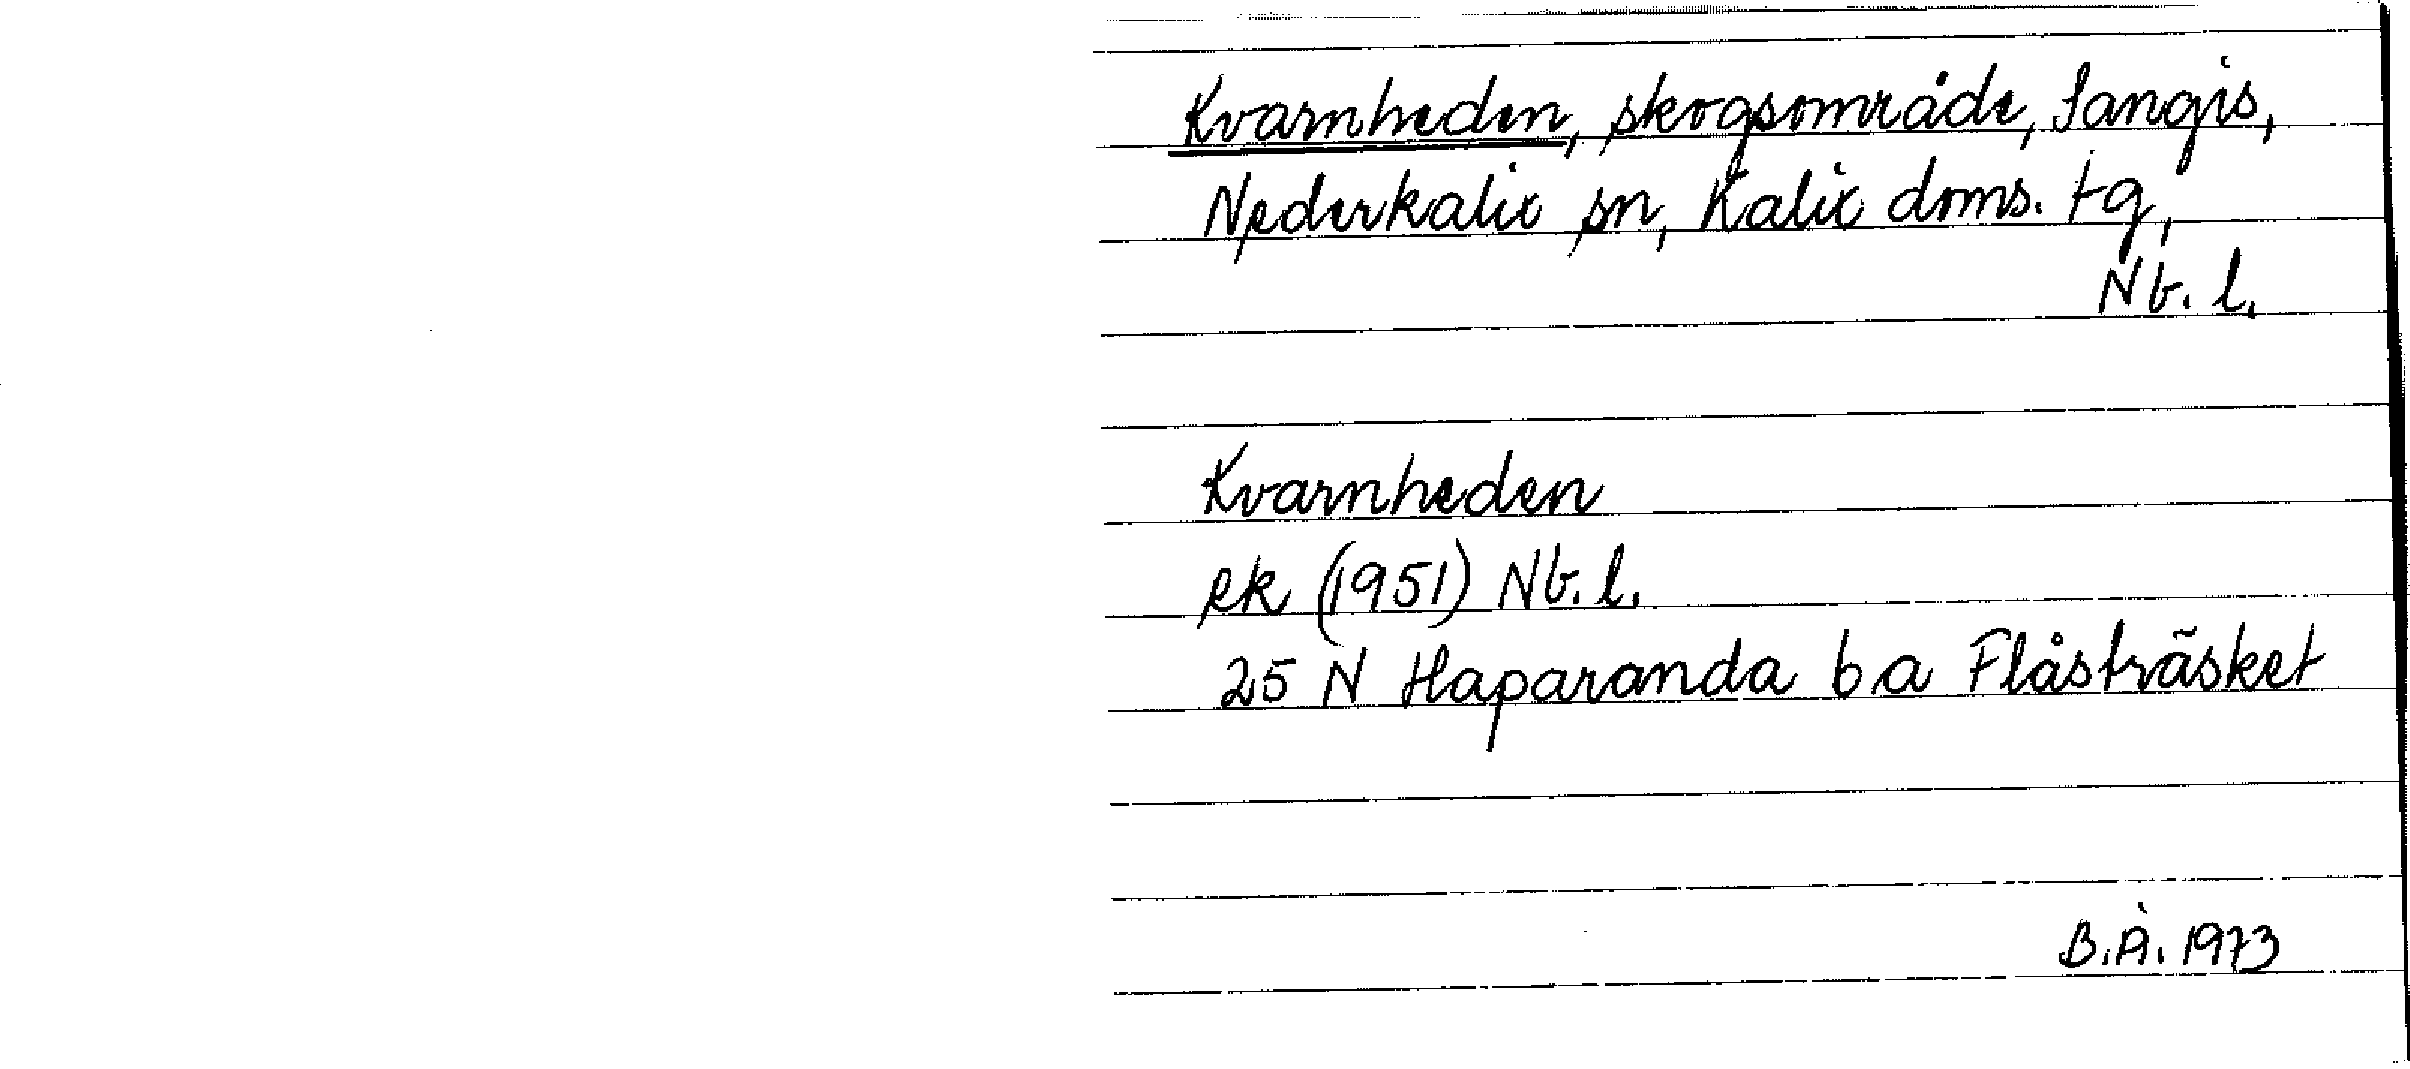 Kvarnheden, skogsområde, Sangis,
Nederkalix sn, Kalix doms. tg,
Nb. l.
Kvarnheden
ek (1951) Nb. l.
25 N Haparanda b a Flåsträsket
B.Å. 1973